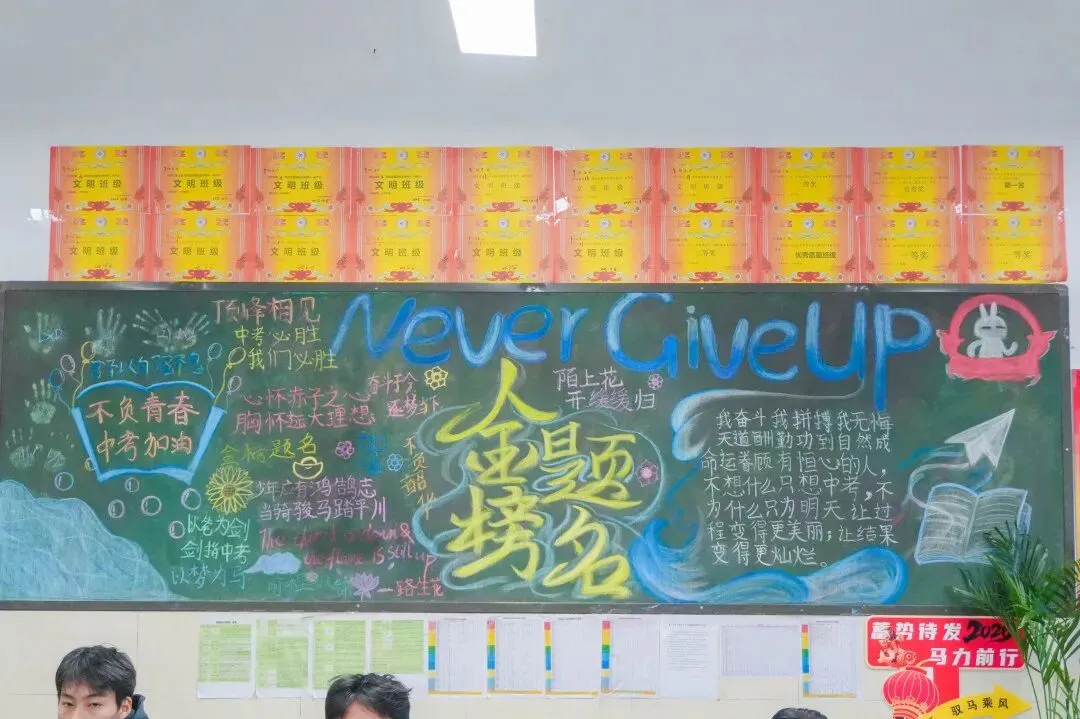 文明班级
文明班级
文明班级
文明班级
文明班级
文明班级
文明班级
第一名
文明班级
文明班级
文明班级
文明班级
文明班级
文明班级
二等奖
优秀质量班级
一等奖
一等奖
顶峰相见
中考必胜
我们必胜
Never Give Up
不负青春
中考加油
心怀赤子之心
胸怀远大理想
奋斗于今
逐梦当下
金榜题名
少年应有鸿鹄志
当骑骏马踏平川
以笔为剑
剑指中考
以梦为马
不负韶华
一路生花
金榜
题名
陌上花
开缓缓归
我奋斗我拼搏我无悔
天道酬勤功到自然成
命运眷顾有恒心的人，
不想什么只想中考，不
为什么只为明天，让过
程变得更美丽；让结果
变得更灿烂。
蓄势待发2026
马力前行
驭马乘风